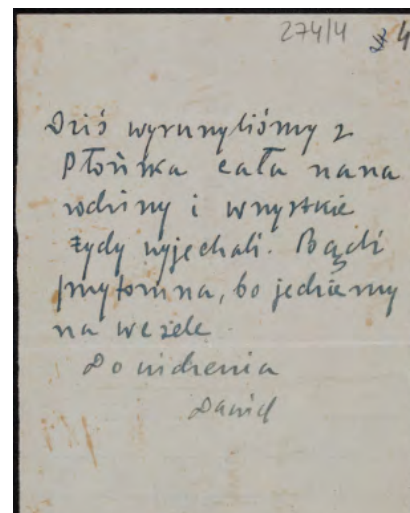 274/4 4
Dziś wyruszyliśmy z
Płońska cała nasza
rodziny i wszystkie
żydy wyjechali. Bądź
przytomna, bo jedziemy
na wesele.
Do widzenia
Dawid